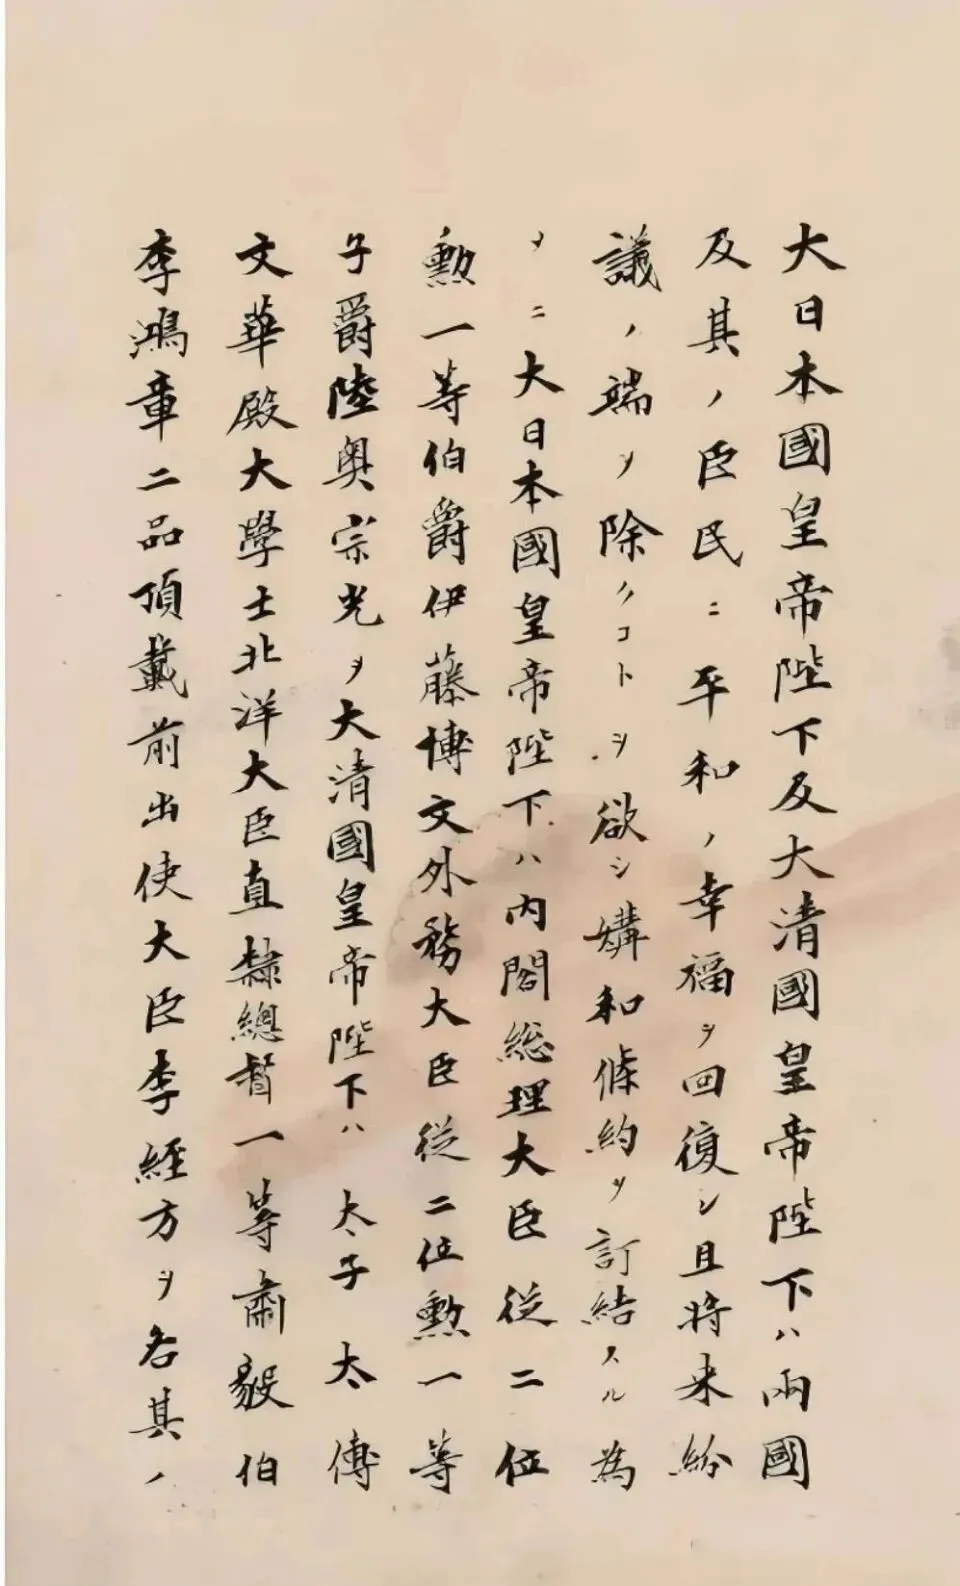 大日本國皇帝陛下及大清國皇帝陛下ハ兩國
及其ノ臣民ニ平和ノ幸福ヲ回復シ且將来紛
議ノ端ヲ除クコトヲ欲シ媾和條約ヲ訂結スル為
メニ大日本國皇帝陛下ハ内閣総理大臣従二位
勲一等伯爵伊藤博文外務大臣従二位勲一等
子爵陸奥宗光ヲ大清國皇帝陛下ハ太子太傅
文華殿大學士北洋大臣直隷總督一等肅毅伯
李鴻章二品頂戴前出使大臣李經方ヲ各其ノ